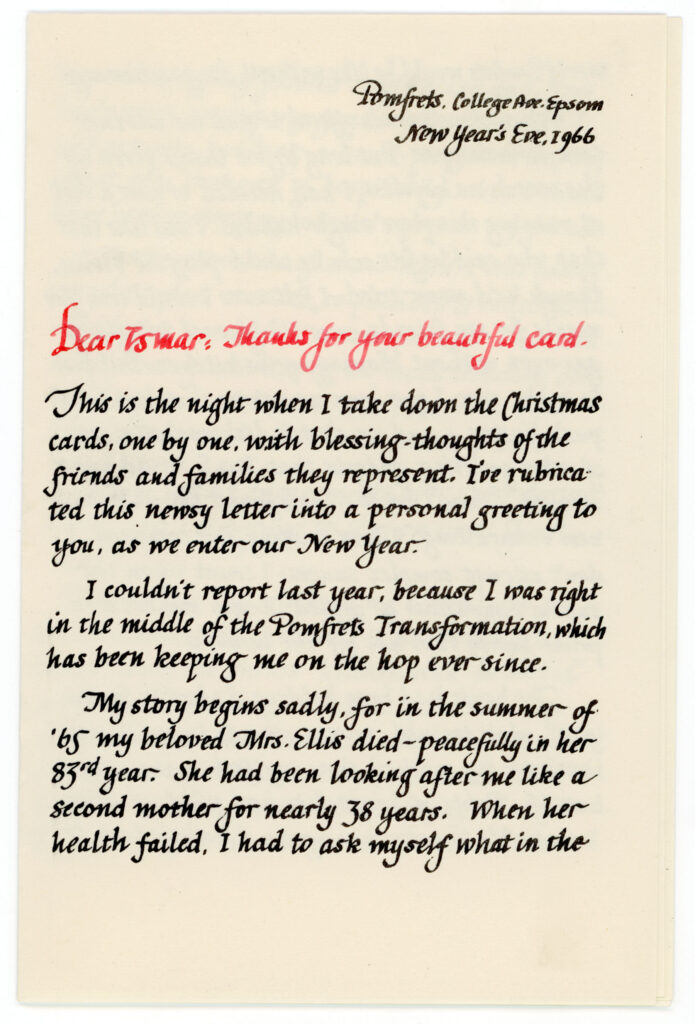 Pomfrets, College Ave. Epsom
New Year's Eve, 1966
Dear Ismar: Thanks for your beautiful card.
This is the night when I take down the Christmas
cards, one by one, with blessing-thoughts of the
friends and families they represent. I've rubrica-
ted this newsy letter into a personal greeting to
you, as we enter our New Year.
I couldn't report last year, because I was right
in the middle of the Pomfrets Transformation, which
has been keeping me on the hop ever since.
My story begins sadly, for in the summer of
'65 my beloved Mrs. Ellis died – peacefully in her
83rd year. She had been looking after me like a
second mother for nearly 38 years. When her
health failed, I had to ask myself what in the